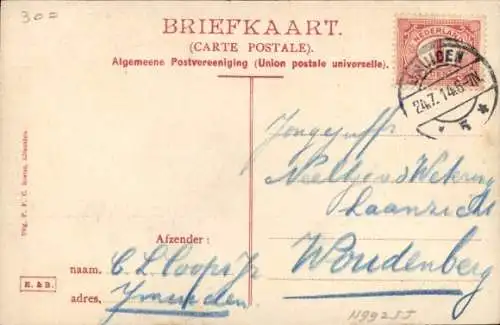 30=
BRIEFKAART.
(CARTE POSTALE).
Algemeene Postvereeniging (Union postale universelle).
NEDERLAND
IJMUIDEN
24.7.14.6-7N
Jongejuffr
Neeltje v d Wekring
Laanzicht
Woudenberg
Afzender:
naam. C L Coops Jr
adres, Ymuiden
R. & B.
119925J